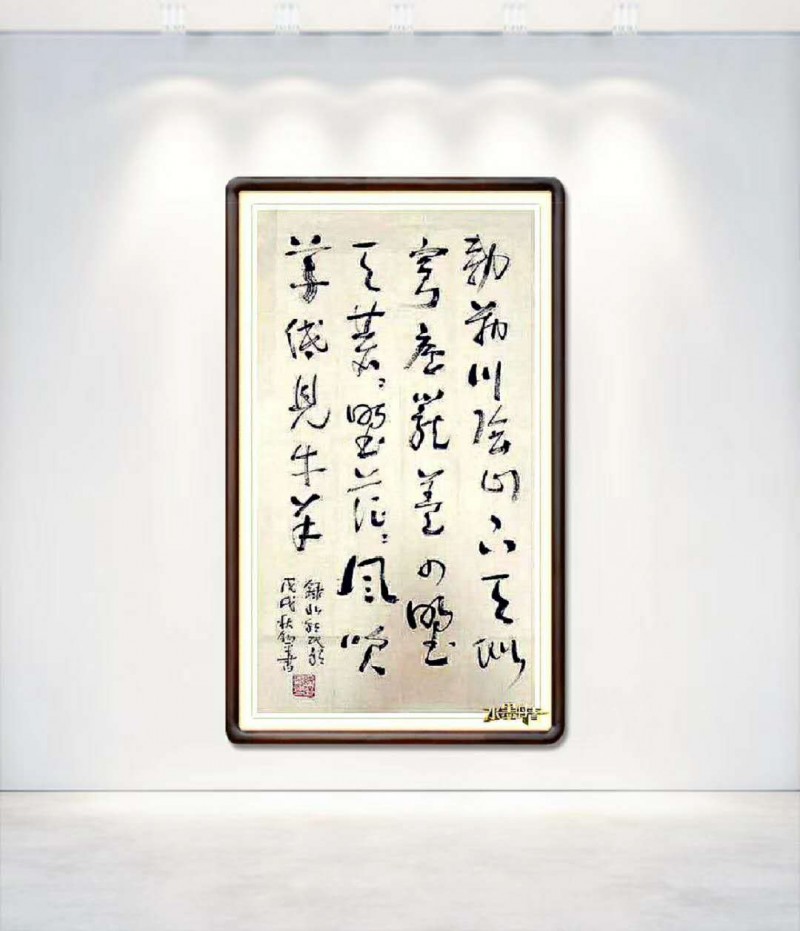 勅勒川陰山下天似
穹廬籠蓋四野
天蒼々野茫々風吹
草低見牛羊
錄北朝民歌
戊戌秋書